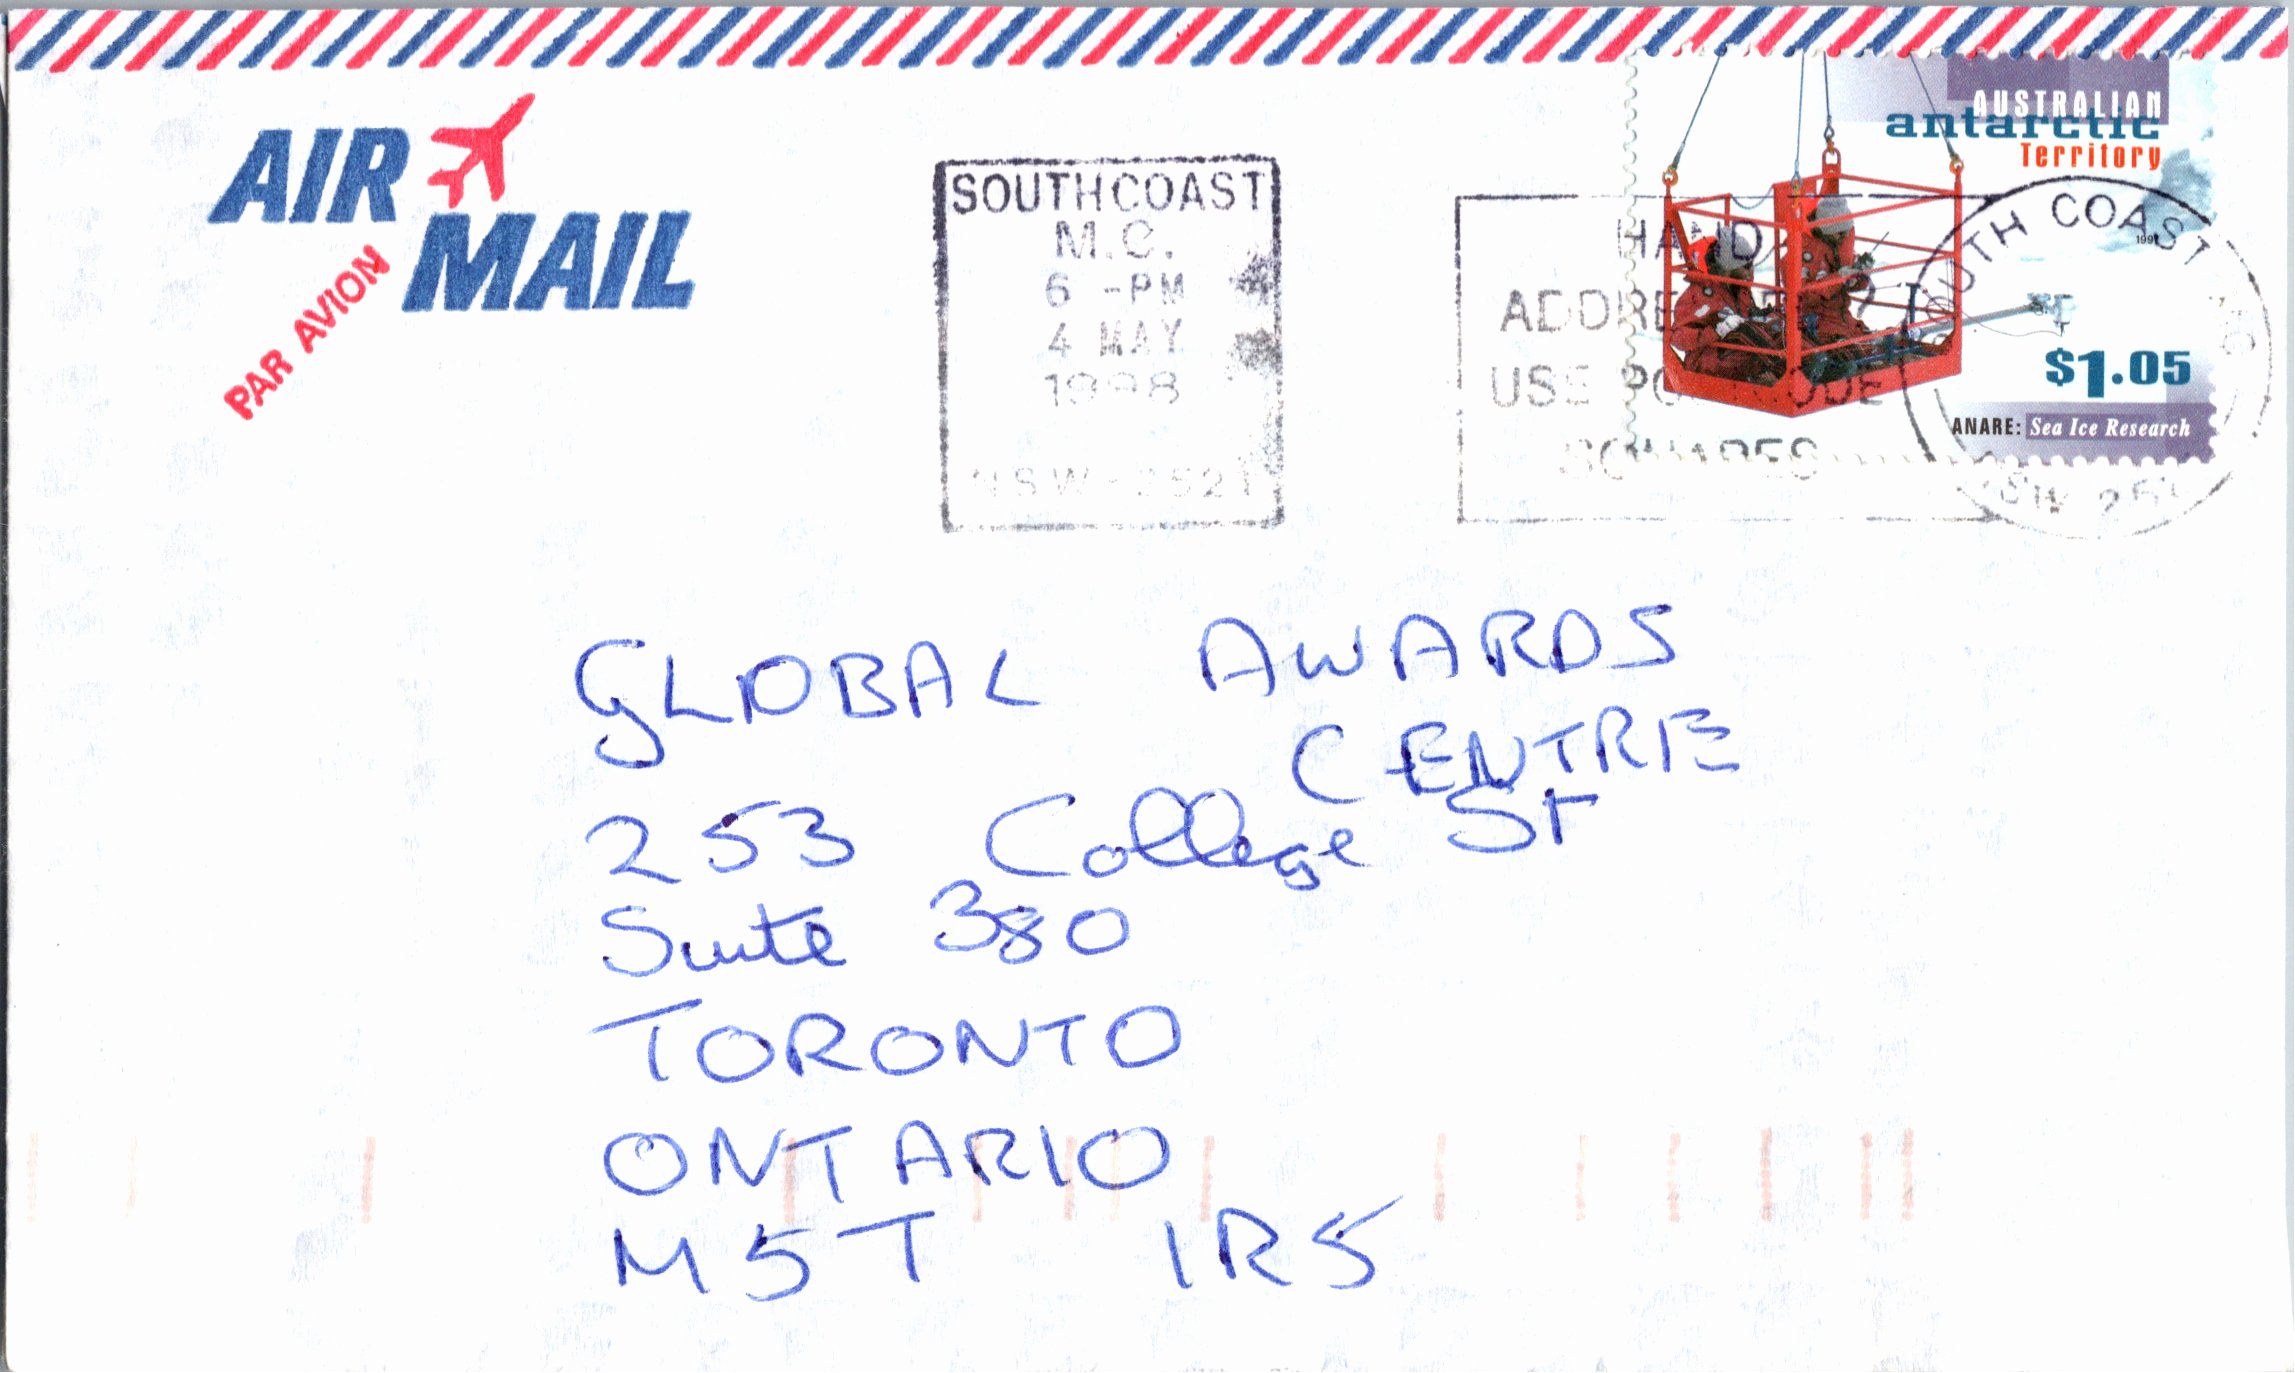 AIR
MAIL
PAR AVION
SOUTH COAST
M.C.
6 -PM
4 MAY
1998
NSW-2521
HAND
USE POSTCODE
SQUARES
AUSTRALIAN
antarctic
Territory
SOUTH COAST
$1.05
ANARE: Sea Ice Research
GLOBAL AWARDS
CENTRE
253 College St
Suite 380
TORONTO
ONTARIO
M5T 1R5